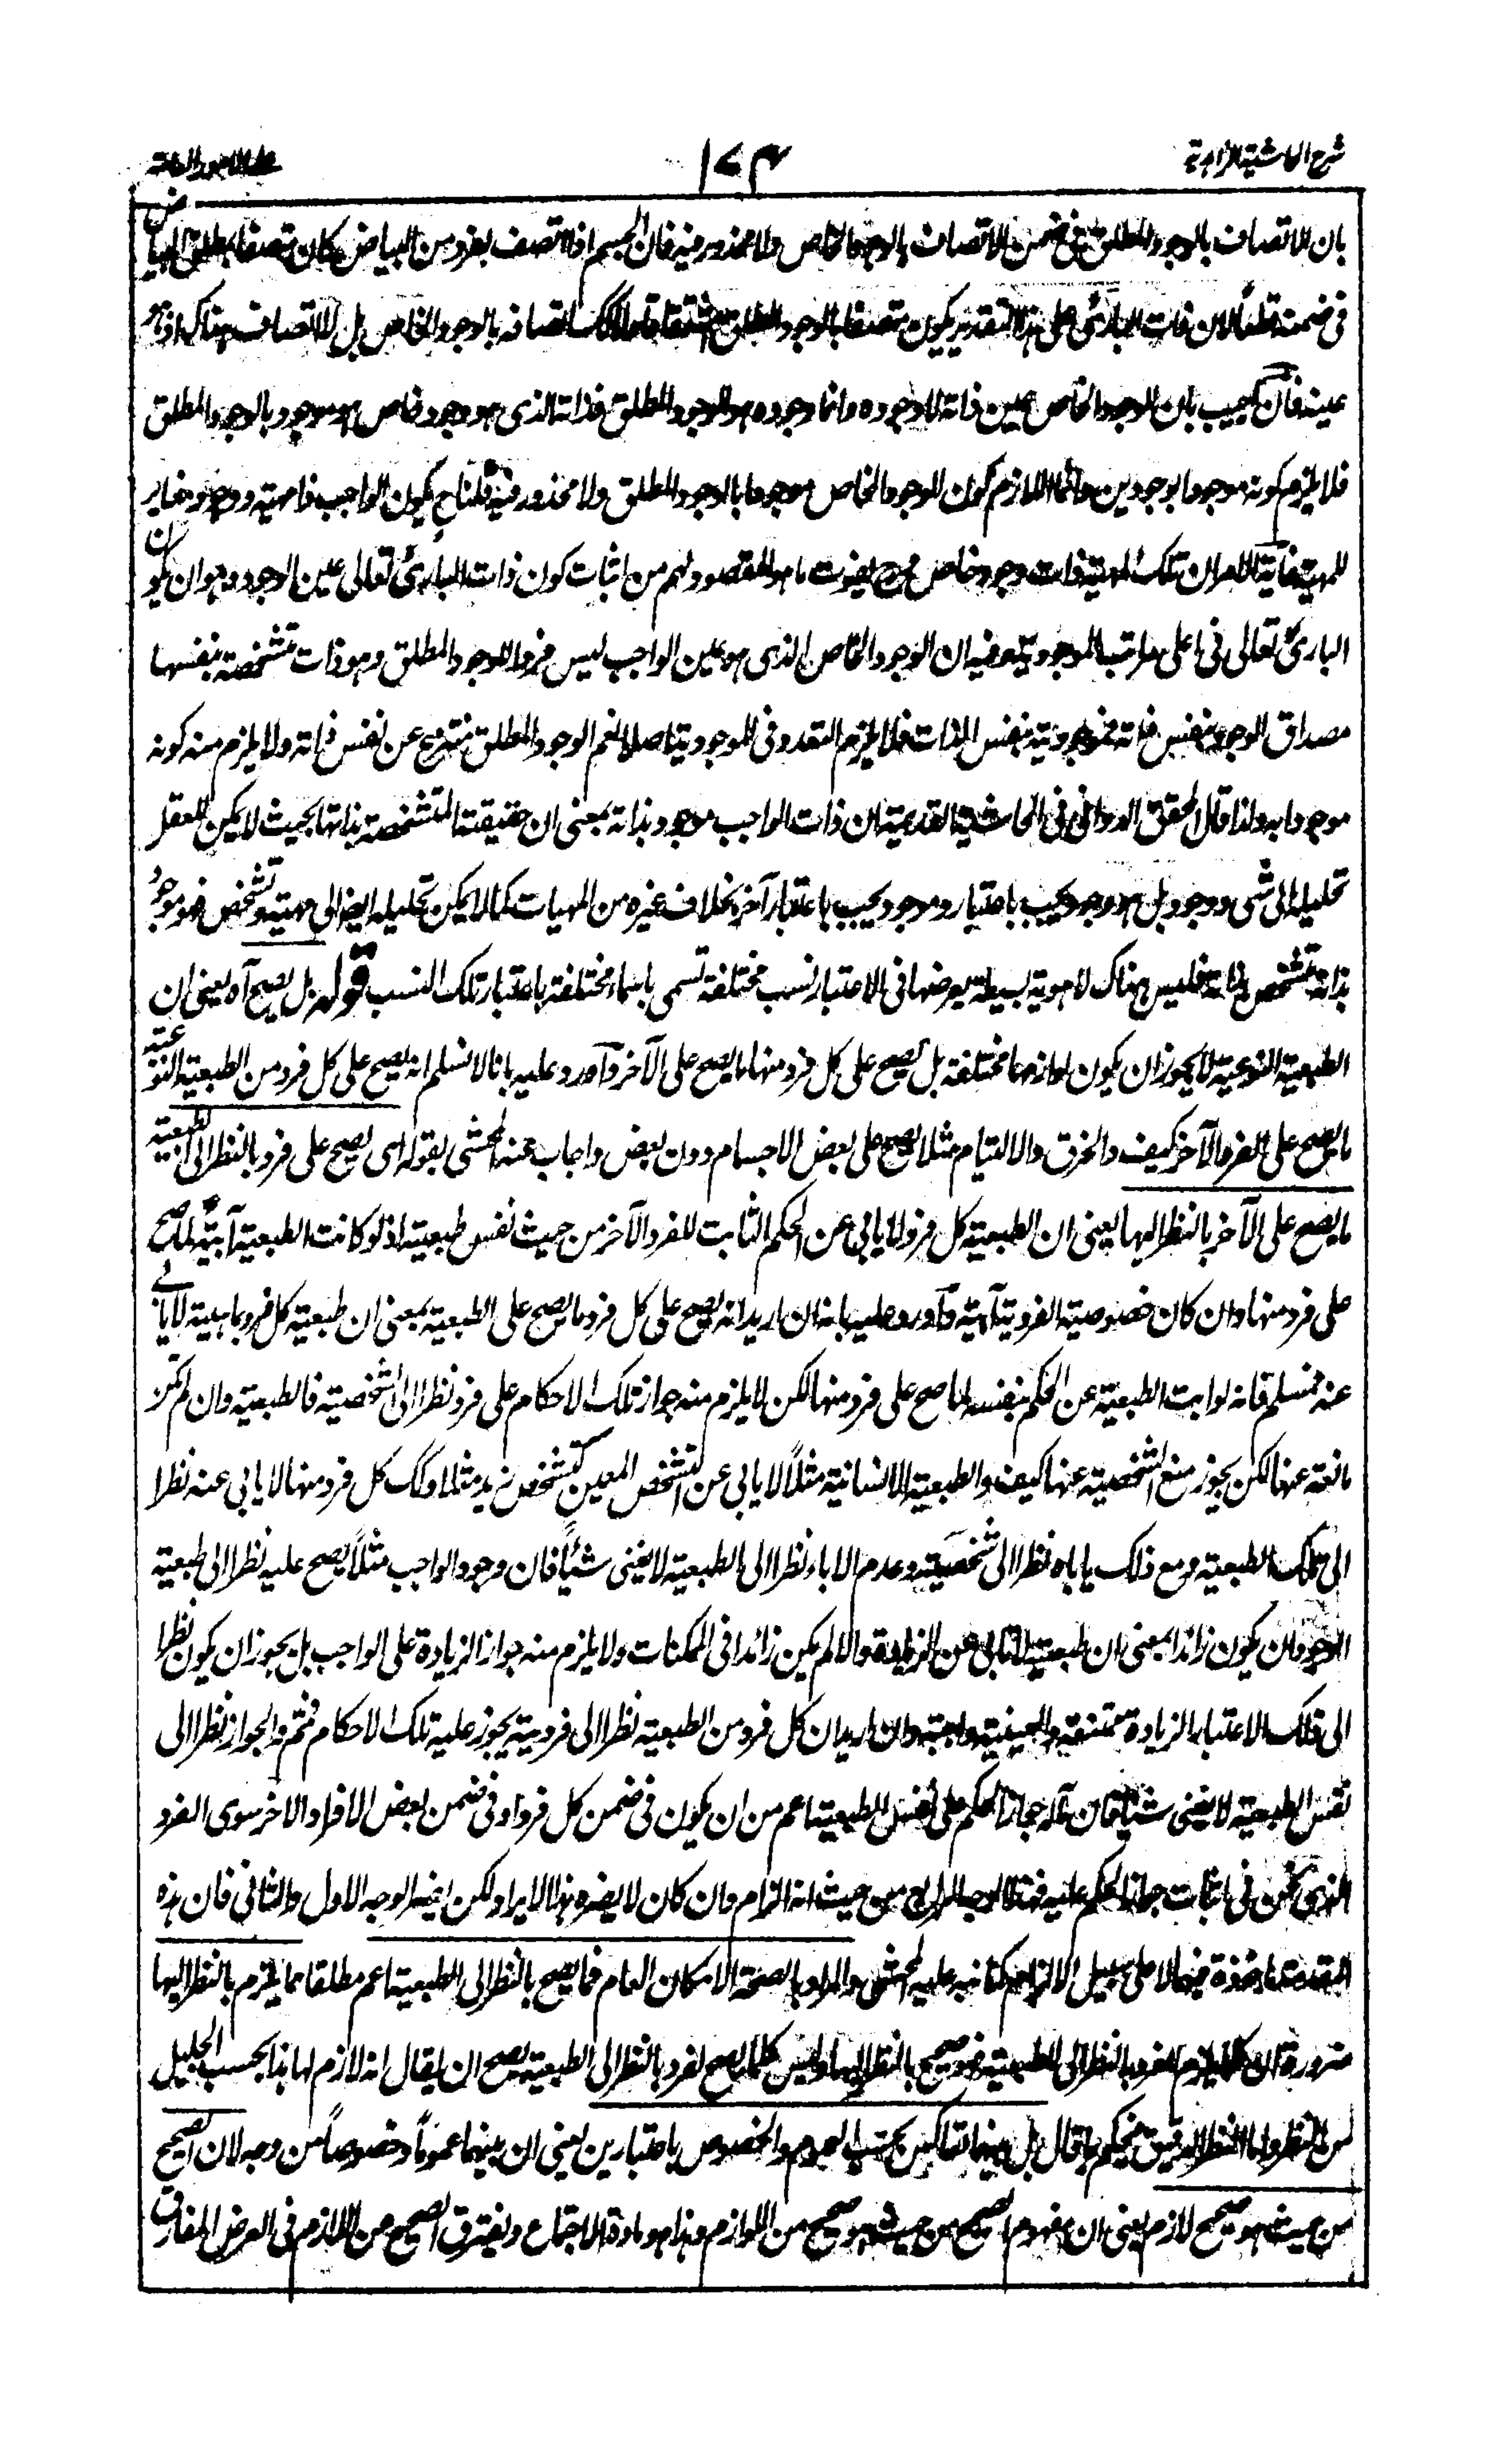 شرح الحاشية الزاهدية
١٧٣
على الامور العامة
بان الاتصاف بالوجود المطلق فى ضمن الاتصاف بالوجود الخاص ولا محذور فيه فان الجسم اذا اتصف بفرد من البياض كان متصفا بمطلق البياض
فى ضمنه قطعا لان ذات البارئ على هذا التقدير يكون متصفا بالوجود المطلق اتصافه بالوجود الخاص بل لا اتصاف هناك اذ هو
عينه فان اجيب بان الوجود الخاص عين ذاته لا وجوده وانما وجوده هو الوجود المطلق فذاته الذى هو وجود خاص هو موجود بالوجود المطلق
فلا يلزم كونه موجودا بوجودين وانما اللازم كون الوجود الخاص موجودا بالوجود المطلق ولا محذور فيه قلنا ح يكون الواجب ذا مهية ووجود مغاير
للمهية غاية الامر ان تلك المهية ذات وجود خاص وح يفوت ما هو المقصود لهم من اثبات كون ذات البارئ تعالى عين الوجود وهو ان يكون
البارئ تعالى فى اعلى مراتب الموجودية وفيه ان الوجود الخاص الذى هو عين الواجب ليس فردا للوجود المطلق وهو ذات متشخصة بنفسها
مصداق الوجود بنفس ذاته فموجوديته بنفس الذات فلا يلزم التعدد فى الموجودية اصلا نعم الوجود المطلق منتزع عن نفس ذاته ولا يلزم منه كونه
موجودا به ولذا قال المحقق الدوانى فى الحاشية القديمة ان ذات الواجب موجود بذاته بمعنى ان حقيقته المتشخصة بذاتها بحيث لا يمكن للعقل
تحليله الى شى ووجود بل هو وجود بحت باعتبار وموجود بحت باعتبار آخر بخلاف غيره من المهيات كما لا يمكن تحليله ايضا الى مهية وتشخص فهو موجود
بذاته متشخص بذاته فليس هناك الا هوية بسيطة يعرضها فى الاعتبار نسب مختلفة تسمى باسماء مختلفة باعتبار تلك النسب قوله بل يصح آه يعنى ان
الطبيعة النوعية لا يجوز ان يكون لوازمها مختلفة بل يصح على كل فرد منها ما يصح على الآخر وآورد عليه بانا لا نسلم انه يصح على كل فرد من الطبيعة النوعية
ما يصح على الفرد الآخر كيف والخرق والالتيام مثلا يصح على بعض الاجسام دون بعض واجاب عنه المحشى بقوله اى يصح على فرد بالنظر الى الطبيعة
ما يصح على الآخر بالنظر اليها يعنى ان الطبيعة كل فرد لا يابى عن الحكم الثابت للفرد الآخر من حيث نفس طبيعته اذ لو كانت الطبيعة آبية لما صح
على فرد منها وان كان خصوصية الفردية آبية وآورد عليه بانه ان اريد انه يصح على كل فرد ما يصح على الطبيعة بمعنى ان طبيعة كل فرد بما هية لا يابى
عنه فمسلم فانه لو ابت الطبيعة عن الحكم بنفسها لما صح على فرد منها لكن لا يلزم منه جواز تلك الاحكام على فرد نظرا الى الشخصية فالطبيعة وان لم تكن
مانعة عنها لكن يجوز منع الشخصية عنها كيف والطبيعة الانسانية مثلاً لا يابى عن التشخص المعين كتشخص زيد مثلا وكك كل فرد منها لا يابى عنه نظرا
الى تلك الطبيعة ومع ذلك ياباه نظرا الى شخصيته وعدم الاباء نظرا الى الطبيعة لا يغنى شيئاً فان وجود الواجب مثلاً يصح عليه نظرا الى طبيعة
الوجود ان يكون زائدا بمعنى ان طبيعته لا تابى عن الزيادة والا لم يكن زائدا فى الممكنات ولا يلزم منه جواز الزيادة على الواجب بل يجوز ان يكون نظرا
الى ذلك الاعتبار الزيادة ممتنعة والعينية واجبة وان اريد ان كل فرد من الطبيعة نظرا الى فرديته يجوز عليه تلك الاحكام فمم والجواز نظرا الى
نفس الطبيعة لا يغنى شيئا فان مآله جواز الحكم على نفس الطبيعة اعم من ان يكون فى ضمن كل فرد او فى ضمن بعض الافراد الاخر سوى الفرد
الذى نحن فى اثبات جواز الحكم عليه فهذا الوجه الرابع من حيث انه الزام وان كان لا يضره هذا الايراد ولكن يضر الوجه الاول والثانى فان هذه
المقدمة ماخوذة فيهما لا على سبيل الالزام كما نبه عليه المحشى والمراد بالصحة الامكان العام فما يصح بالنظر الى الطبيعة اعم مطلقا مما يلزم بالنظر اليها
ضرورة ان كلما يلزم الفرد بالنظر الى الطبيعة فهو صحيح بالنظر اليها وليس كلما يصح لفرد بالنظر الى الطبيعة يصح ان يقال انه لازم لها هذا بحسب الجليل
من النظر واما النظر الدقيق فيحكم بان يقال بل بينهما تعاكس بحسب العموم والخصوص باعتبارين يعنى ان بينهما عموماً وخصوصاً من وجه لان الصحيح
من حيث هو صحيح لازم يعنى ان مفهوم الصحيح من حيث هو صحيح من اللوازم وهذا هو مادة الاجتماع ويفترق الصحيح عن اللازم فى العرض المفارق